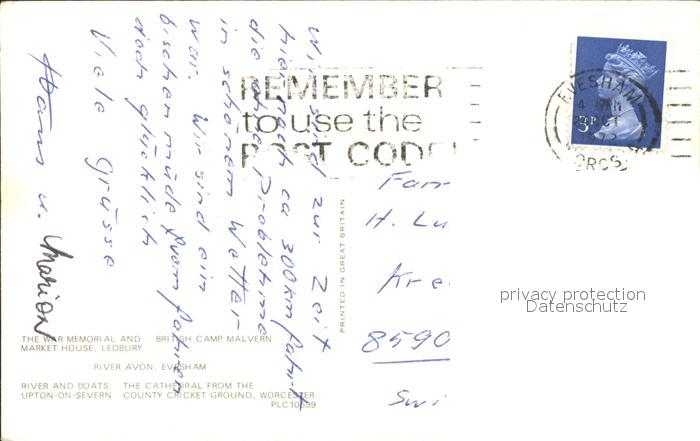 Wir sind zur Zeit
hier nach ca 300 km Fahrt
die ohne Probleme
in schönem Wetter
war. Wir sind ein
bischen müde vom fahren
doch glücklich
Viele Grüsse
Hans u. Marion
REMEMBER
to use the
POST CODE
EVESHAM
Fam
H. Lu
Kre
8590
Swi
PRINTED IN GREAT BRITAIN
privacy protection
Datenschutz
THE WAR MEMORIAL AND MARKET HOUSE, LEDBURY
BRITISH CAMP, MALVERN
RIVER AVON, EVESHAM
RIVER AND BOATS UPTON-ON-SEVERN
THE CATHEDRAL FROM THE COUNTY CRICKET GROUND, WORCESTER
PLC10599